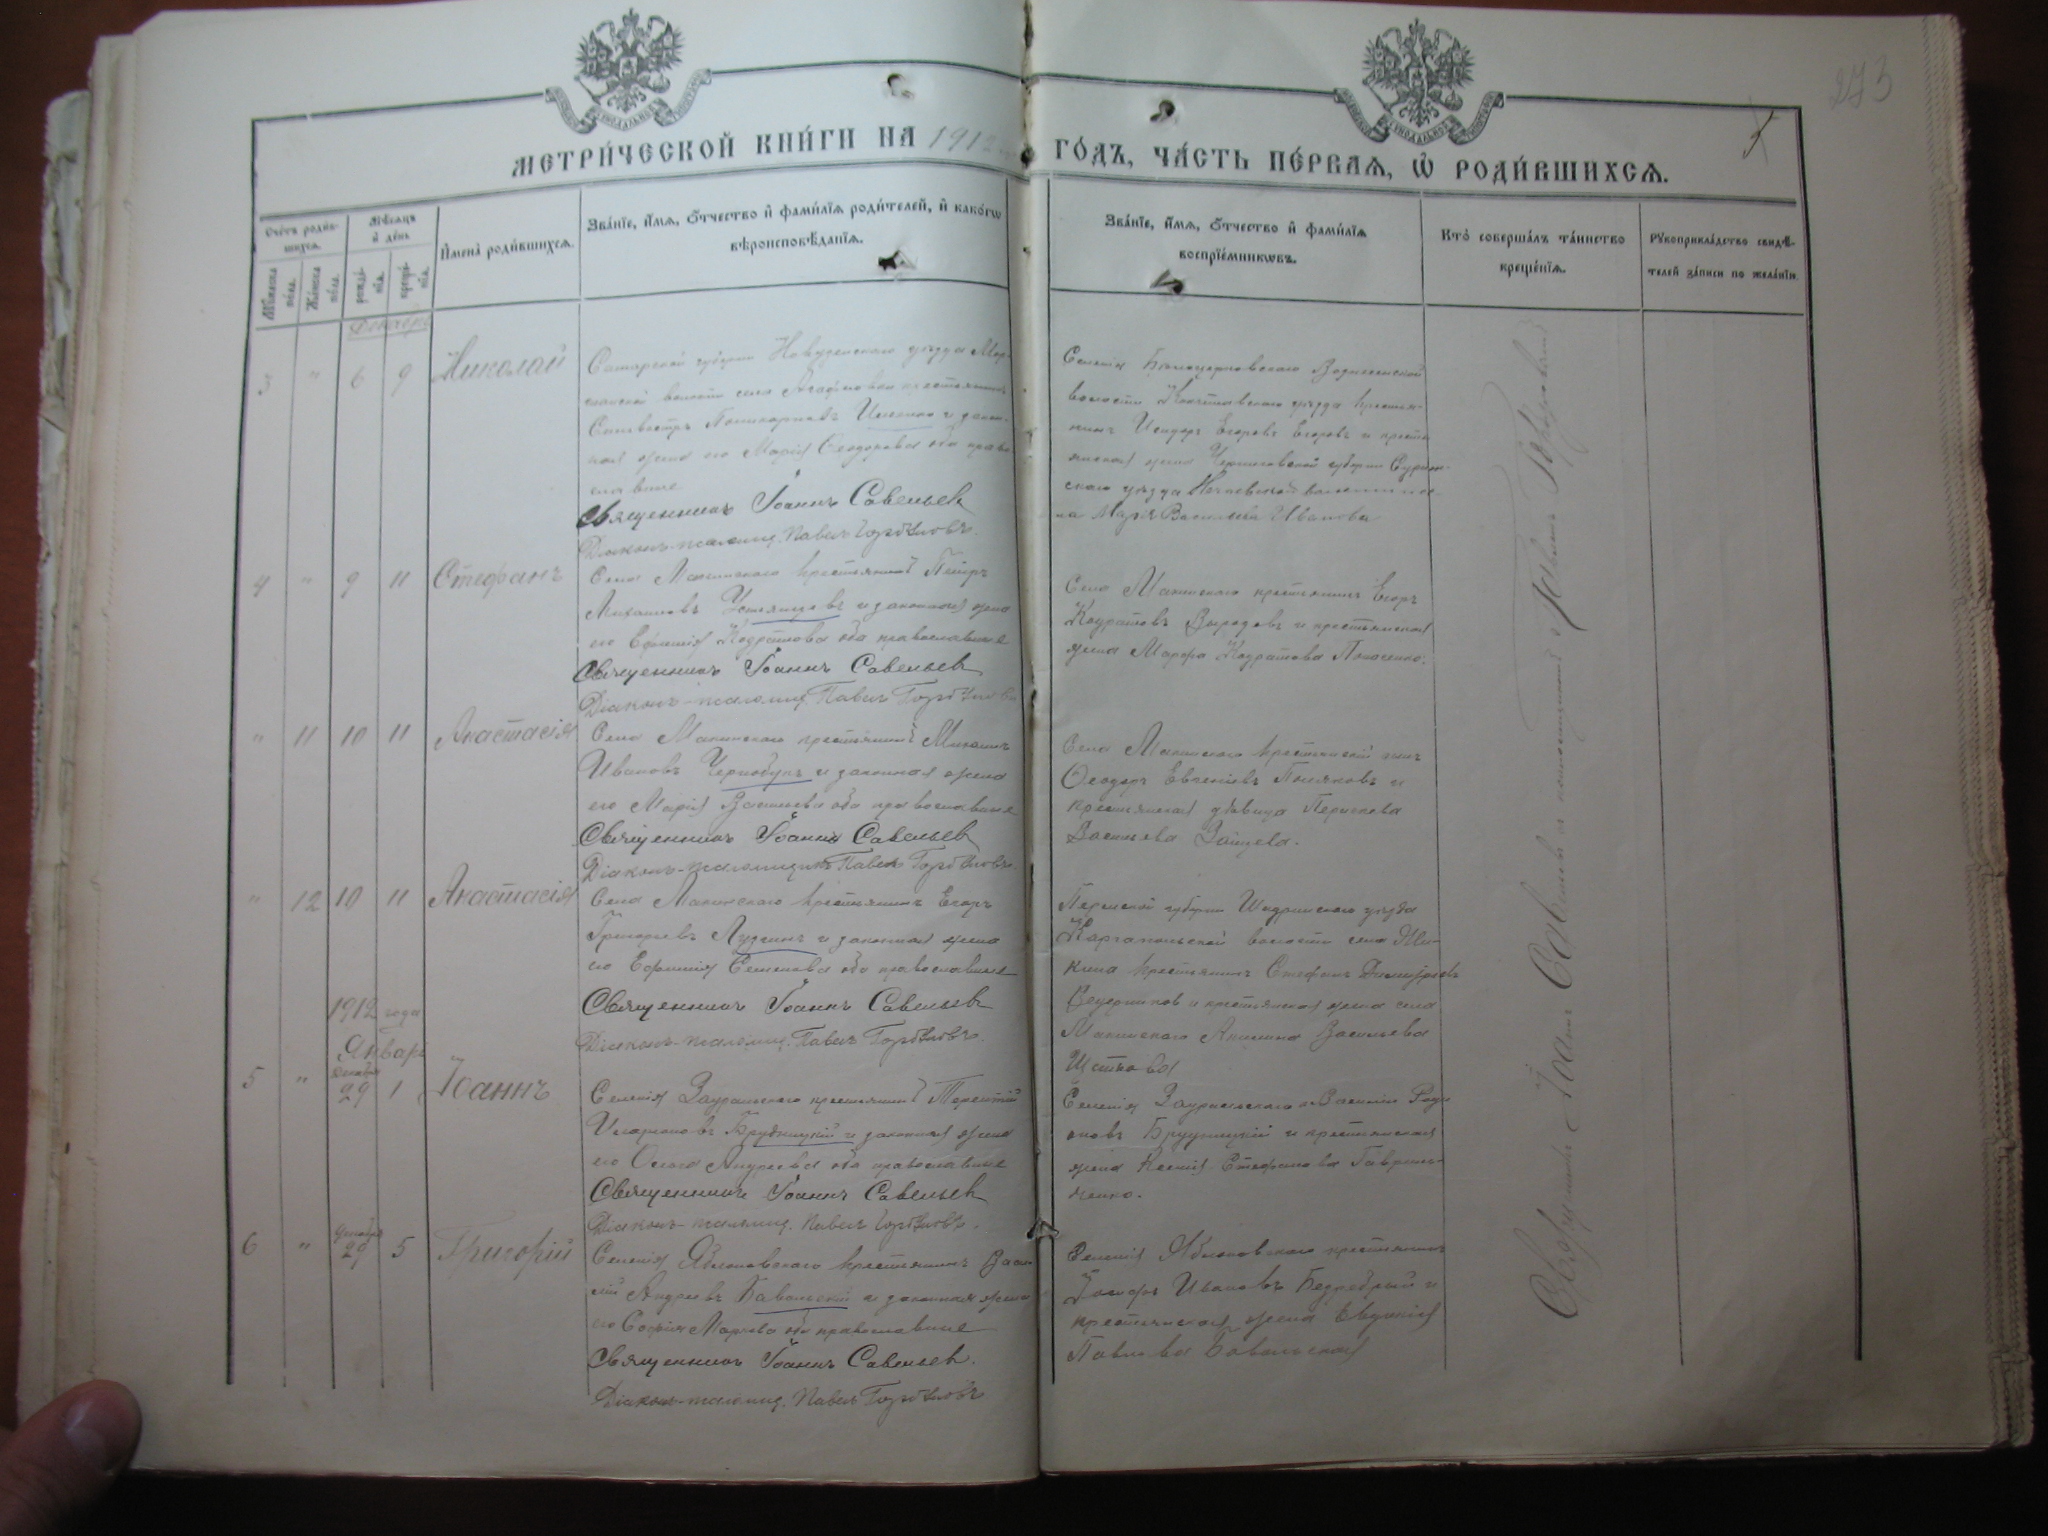 273
МЕТРИ́ЧЕСКОЙ КНИ́ГИ НА 1912 ГО́ДЪ, ЧА́СТЬ ПЕ́РВАѦ, Ѡ҆ РОДИ́ВШИХСѦ.
Сче́тъ роди́в-
шихсѧ.
Мꙋ́жеска по́ла.
Же́нска по́ла.
Мѣ́сѧцъ и҆ де́нь
рожде́-нїѧ.
креще́-нїѧ.
И҆мена̀ роди́вшихсѧ.
Зва́нїе, и҆́мѧ, ѻ҆́тчество и҆ фами́лїѧ роди́телей, и҆ како́гѡ
вѣроисповѣ́данїѧ.
Зва́нїе, и҆́мѧ, ѻ҆́тчество и҆ фами́лїѧ
воспрїе́мникѡвъ.
Кто̀ соверша́лъ та́инство
креще́нїѧ.
Рꙋкоприкла́дство свидѣ́-
телей за́писи по жела́нїю
Декабрь
3 " 6 9 Николай
Самарской губернiи Новоузенскаго уѣзда
волости села крестьянинъ
Сильвестръ Поликарповъ и закон-
ная жена его Марiя Ѳеодорова оба право
славные
Священникъ Iоаннъ Савельев
Дiаконъ-псаломщ. Павелъ Горбуновъ.
Селенiя Бѣлоцерковскаго Вознесенской
волости Кокчетавскаго уѣзда крестья-
нинъ Исидоръ Егоровъ Егоровъ и кресть
янская жена Черниговской губернiи Сураж-
скаго уѣзда волости се-
ла Марiя Васильева Иванова
4 " 9 11 Стефанъ
Села Макинскаго крестьянинъ Петръ
Михаиловъ Устьянцевъ и законная жена
его Ефимiя Кодратова оба православные
Священникъ Iоаннъ Савельев
Дiаконъ-псаломщ. Павелъ Горбунов
Села Макинскаго крестьянинъ Егоръ
Кодратовъ Выродовъ и крестьянская
жена Марфа Кодратова
" 11 10 11 Анастасiя
Села Макинскаго крестьянинъ Михаилъ
Ивановъ Чернобукъ и законная жена
его Марiя Васильева оба православные
Священникъ Iоаннъ Савельев
Дiаконъ-псаломщикъ Павелъ Горбуновъ
Села Макинскаго крестьянскiй сынъ
Ѳеодоръ Евгенiевъ Поляковъ и
крестьянская дѣвица Пелагея
Васильева Зайцева.
" 12 10 11 Анастасiя
Села Макинскаго крестьянинъ Егоръ
Григорьевъ Лузгинъ и законная жена
его Ефимiя Семенова оба православные
Священникъ Iоаннъ Савельев
Дiаконъ-псаломщ. Павелъ Горбуновъ.
Пермской губернiи Шадринскаго уѣзда
Каргапольской волости села
кина крестьянинъ Стефанъ Димитрiевъ
и крестьянская жена села
Макинскаго Акилина Васильева
1912 года
Январь
Декабря
5 " 29 1 Iоаннъ
Селенiя Зауральскаго крестьянинъ Терентiй
Брудницкiй и законная жена
его Ольга Андреева оба православные
Священникъ Iоаннъ Савельев
Дiаконъ-псаломщ. Павелъ Горбуновъ.
Селенiя Зауральскаго Василiй
оновъ Брудницкiй и крестьянская
жена Ксенiя Стефанова Гаврил-
ченко.
Декабря
6 " 29 5 Григорiй
Селенiя Яблоновскаго крестьянинъ Васи-
лiй Андреевъ Бавольскiй и законная жена
его Софiя Маркова оба православные
Священникъ Iоаннъ Савельев.
Дiаконъ-псаломщ. Павелъ Горбуновъ
Селенiя Яблоновскаго крестьянинъ
Iосифъ Ивановъ Бедребрый и
крестьянская жена Евдокiя
Павлова Бавольская
Священникъ Iоаннъ Савельев и псаломщикъ Павелъ Горбуновъ